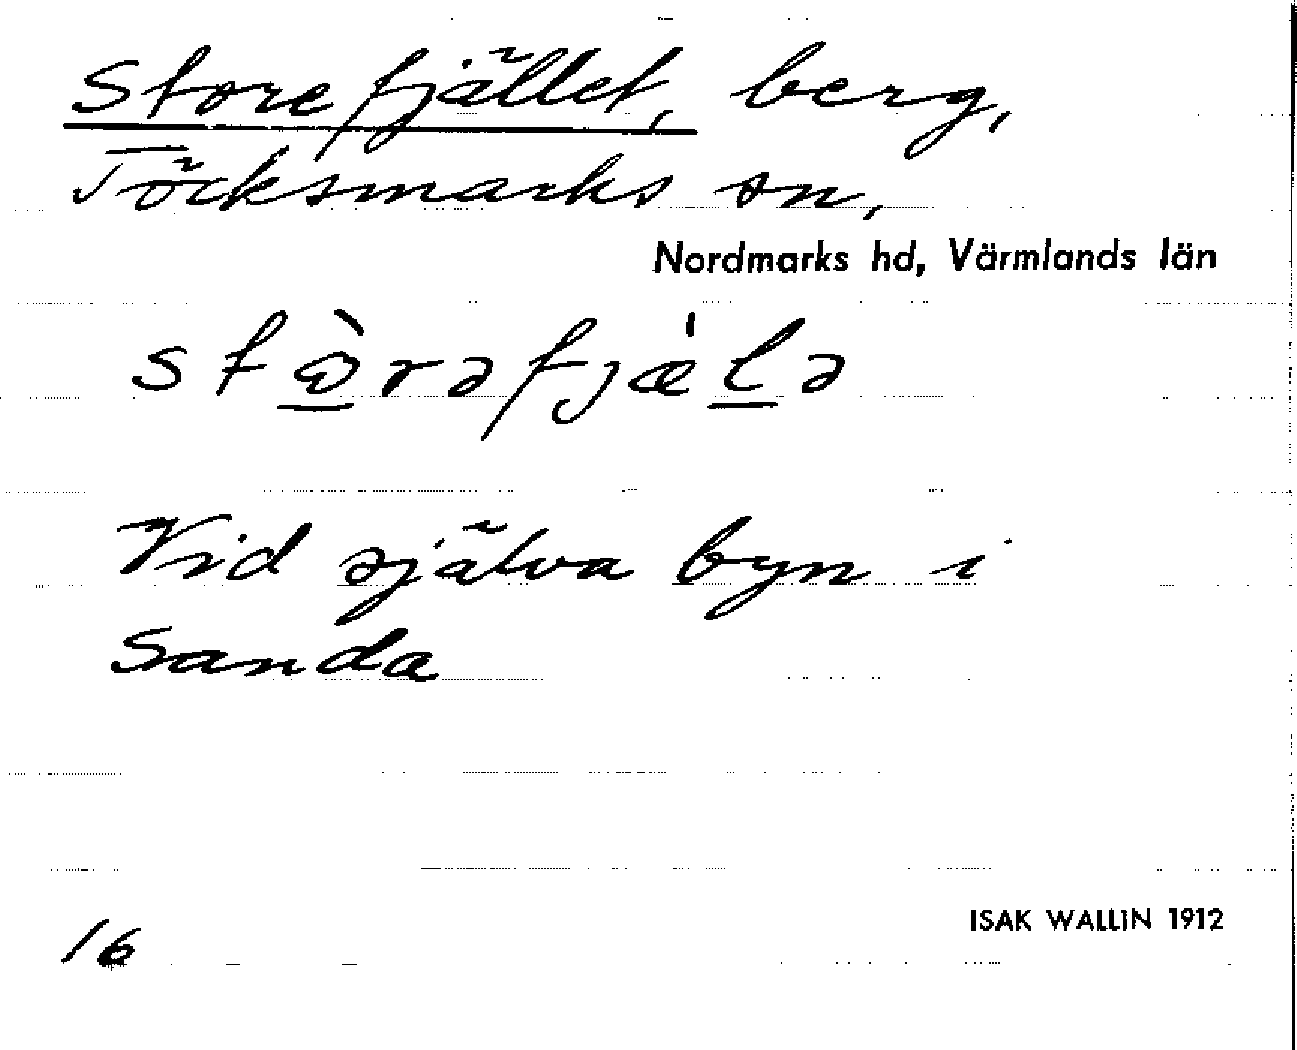 Storefjället, berg,
Töcksmarks sn,
Nordmarks hd, Värmlands län
stɷ̀rəfjæ'lə
Vid själva byn i
Sanda
16
ISAK WALLIN 1912